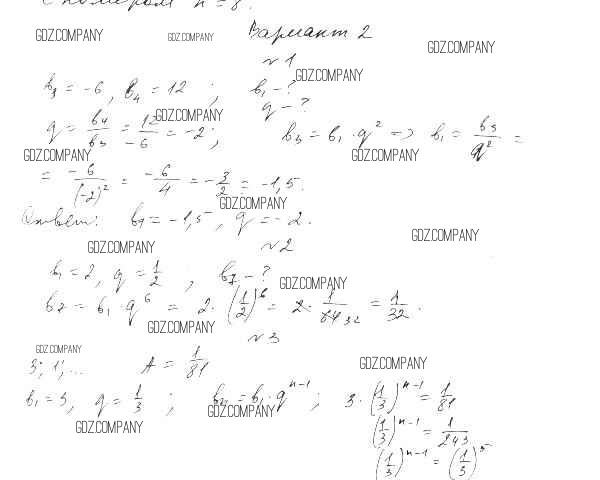 с номером n = 8.
GDZ.COMPANY GDZ.COMPANY Вариант 2 GDZ.COMPANY
№1 GDZ.COMPANY
b₃ = -6, b₄ = 12 ; b₁ - ?
q - ?
q = b₄/b₃ = 12/-6 = -2; GDZ.COMPANY b₃ = b₁ · q² => b₁ = b₃/q² =
GDZ.COMPANY GDZ.COMPANY
= -6/(-2)² = -6/4 = -3/2 = -1,5.
GDZ.COMPANY
Ответ: b₁ = -1,5, q = -2.
GDZ.COMPANY №2 GDZ.COMPANY
b₁ = 2, q = 1/2 ; b₇ - ? GDZ.COMPANY
b₇ = b₁ · q⁶ = 2 · (1/2)⁶ = 2 · 1/64 32 = 1/32 .
GDZ.COMPANY №3
GDZ.COMPANY GDZ.COMPANY
3; 1; ... A = 1/81
b₁ = 3, q = 1/3 ; bₙ = b₁ · qⁿ⁻¹ ; 3 · (1/3)ⁿ⁻¹ = 1/81
GDZ.COMPANY
GDZ.COMPANY (1/3)ⁿ⁻¹ = 1/243
(1/3)ⁿ⁻¹ = (1/3)⁵